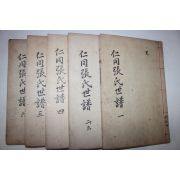 仁同張氏世譜 一
仁同張氏世譜
仁同張氏世譜 四
仁同張氏世譜 三
仁同張氏世譜